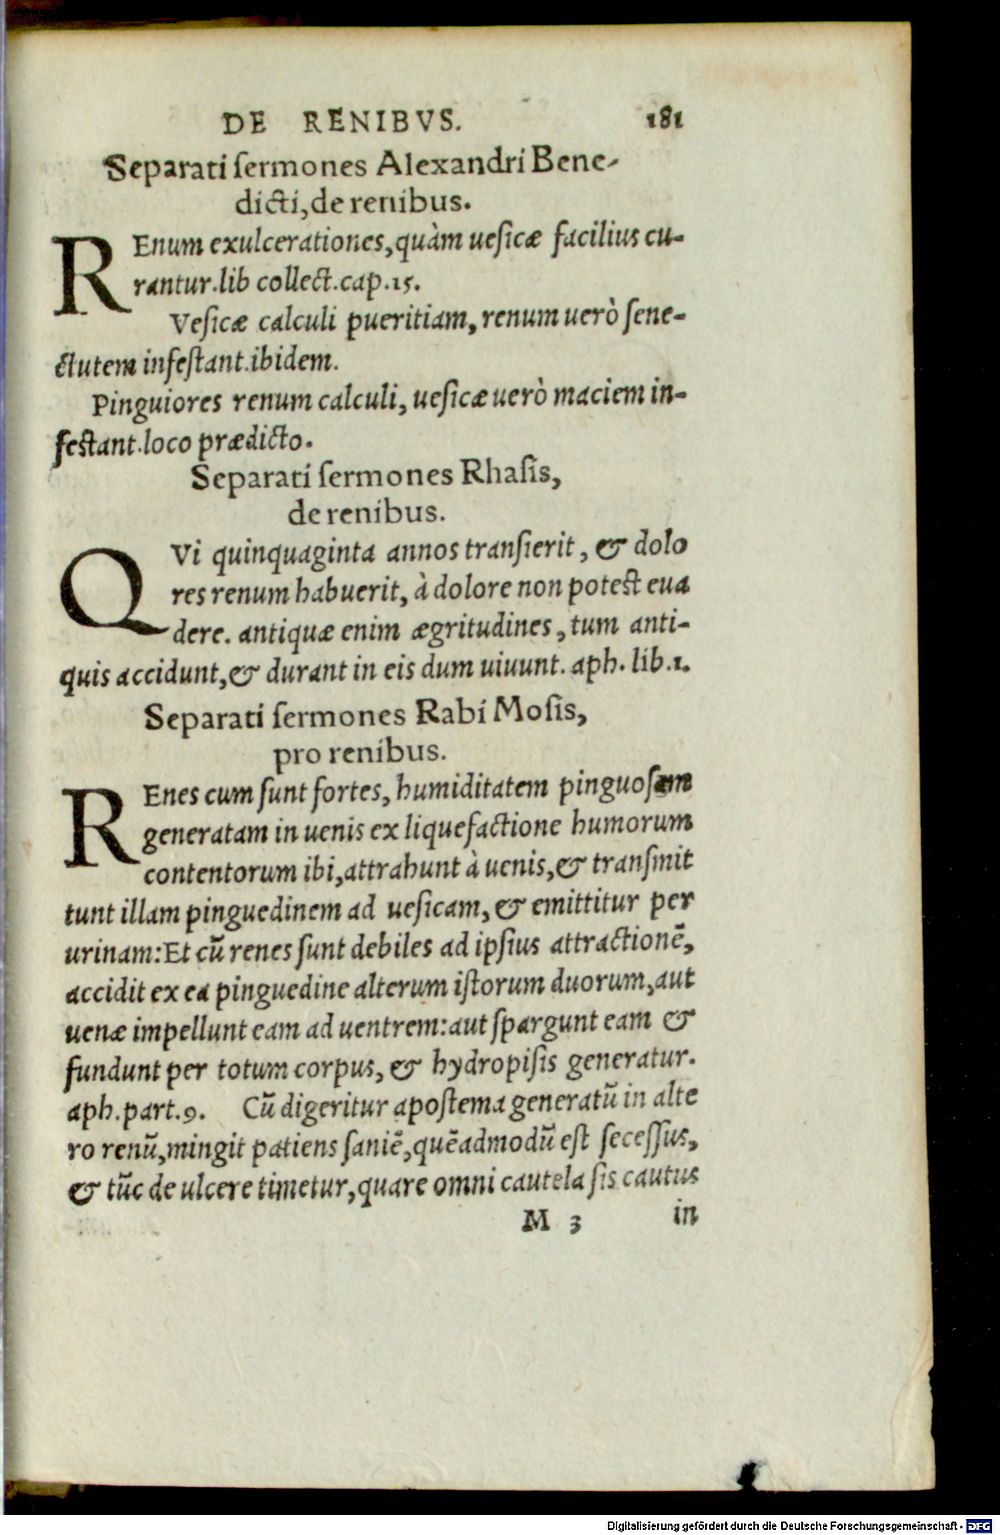 DE RENIBVS. 181
Separati sermones Alexandri Bene-
dicti, de renibus.
REnum exulcerationes, quàm uesicæ facilius cu-
rantur. lib collect. cap. 15.
Vesicæ calculi pueritiam, renum uerò sene-
ctutem infestant. ibidem.
Pinguiores renum calculi, uesicæ uerò maciem in-
festant. loco prædicto.
Separati sermones Rhasis,
de renibus.
QVi quinquaginta annos transierit, & dolo
res renum habuerit, à dolore non potest eua
dere. antiquæ enim ægritudines, tum anti-
quis accidunt, & durant in eis dum uiuunt. aph. lib. 1.
Separati sermones Rabi Mosis,
pro renibus.
REnes cum sunt fortes, humiditatem pinguosam
generatam in uenis ex liquefactione humorum
contentorum ibi, attrahunt à uenis, & transmit
tunt illam pinguedinem ad uesicam, & emittitur per
urinam: Et cũ renes sunt debiles ad ipsius attractionẽ,
accidit ex ea pinguedine alterum istorum duorum, aut
uenæ impellunt eam ad uentrem: aut spargunt eam &
fundunt per totum corpus, & hydropisis generatur.
aph. part. 9. Cũ digeritur apostema generatũ in alte
ro renũ, mingit patiens saniẽ, quẽadmodũ est secessus,
& tũc de ulcere timetur, quare omni cautela sis cautus
M 3 in
Digitalisierung gefördert durch die Deutsche Forschungsgemeinschaft - DFG